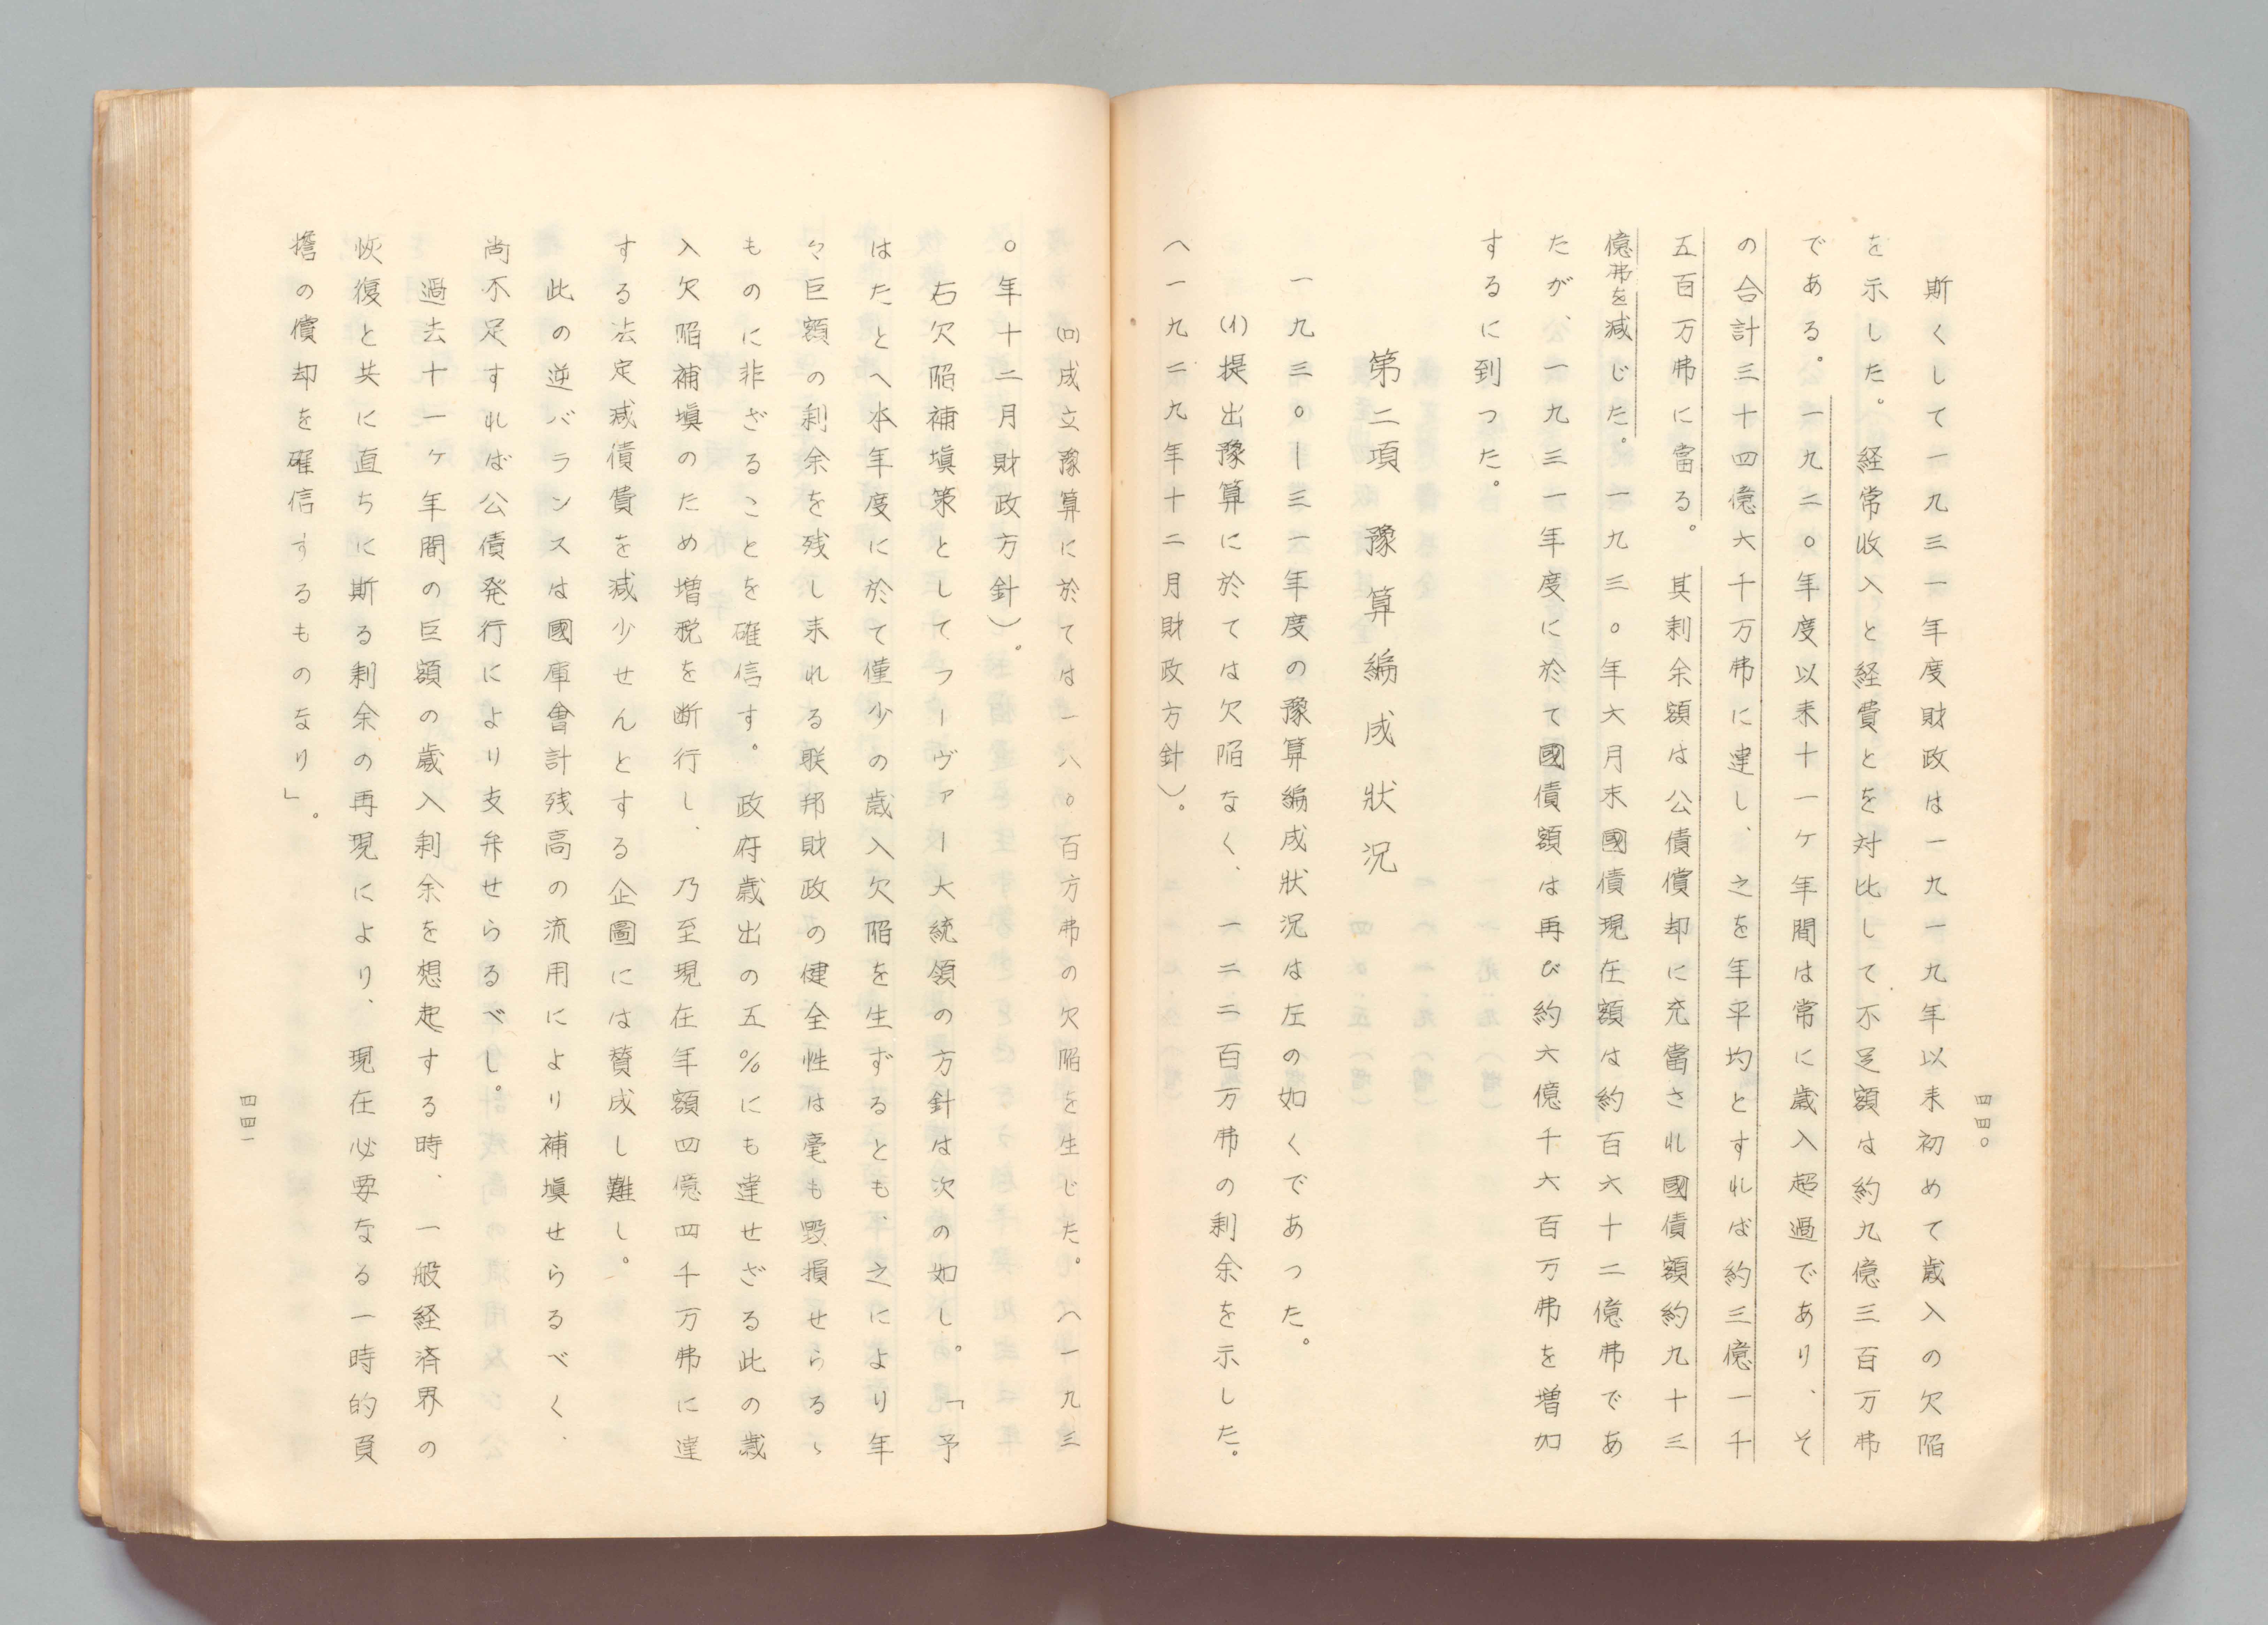 四四〇
斯くして一九三一年度財政は一九一九年以来初めて歳入の欠陥
を示した。経常収入と経費とを対比して不足額は約九億三百万弗
である。一九二〇年度以来十一ケ年間は常に歳入超過であり、そ
の合計三十四億六千万弗に達し、之を年平均とすれば約三億一千
五百万弗に當る。其剰余額は公債償却に充當され國債額約九十三
億弗を減じた。一九三〇年六月末國債現在額は約百六十二億弗であ
たが、一九三一年度に於て國債額は再び約六億千六百万弗を増加
するに到つた。
第二項 豫算編成狀況
一九三〇ー三一年度の豫算編成狀況は左の如くであつた。
(イ)提出豫算に於ては欠陥なく、一二二百万弗の剰余を示した。
(一九二九年十二月財政方針)。
(ロ)成立豫算に於ては一八〇百万弗の欠陥を生じた。(一九三
〇年十二月財政方針)。
右欠陥補塡策としてフーヴァー大統領の方針は次の如し。「予
はたとへ本年度に於て僅少の歳入欠陥を生ずるとも、之により年
々巨額の剰余を残し来れる联邦財政の健全性は毫も毀損せらるゝ
ものに非ざることを確信す。政府歳出の五%にも達せざる此の歳
入欠陥補塡のため増税を断行し、乃至現在年額四億四千万弗に達
する法定减債費を減少せんとする企圖には賛成し難し。
此の逆バランスは國庫會計残高の流用により補塡せらるべく、
尚不足すれば公債発行により支弁せらるべし。
過去十一ケ年間の巨額の歳入剰余を想起する時、一般経済界の
恢復と共に直ちに斯る剰余の再現により、現在必要なる一時的負
擔の償却を確信するものなり」。
四四一